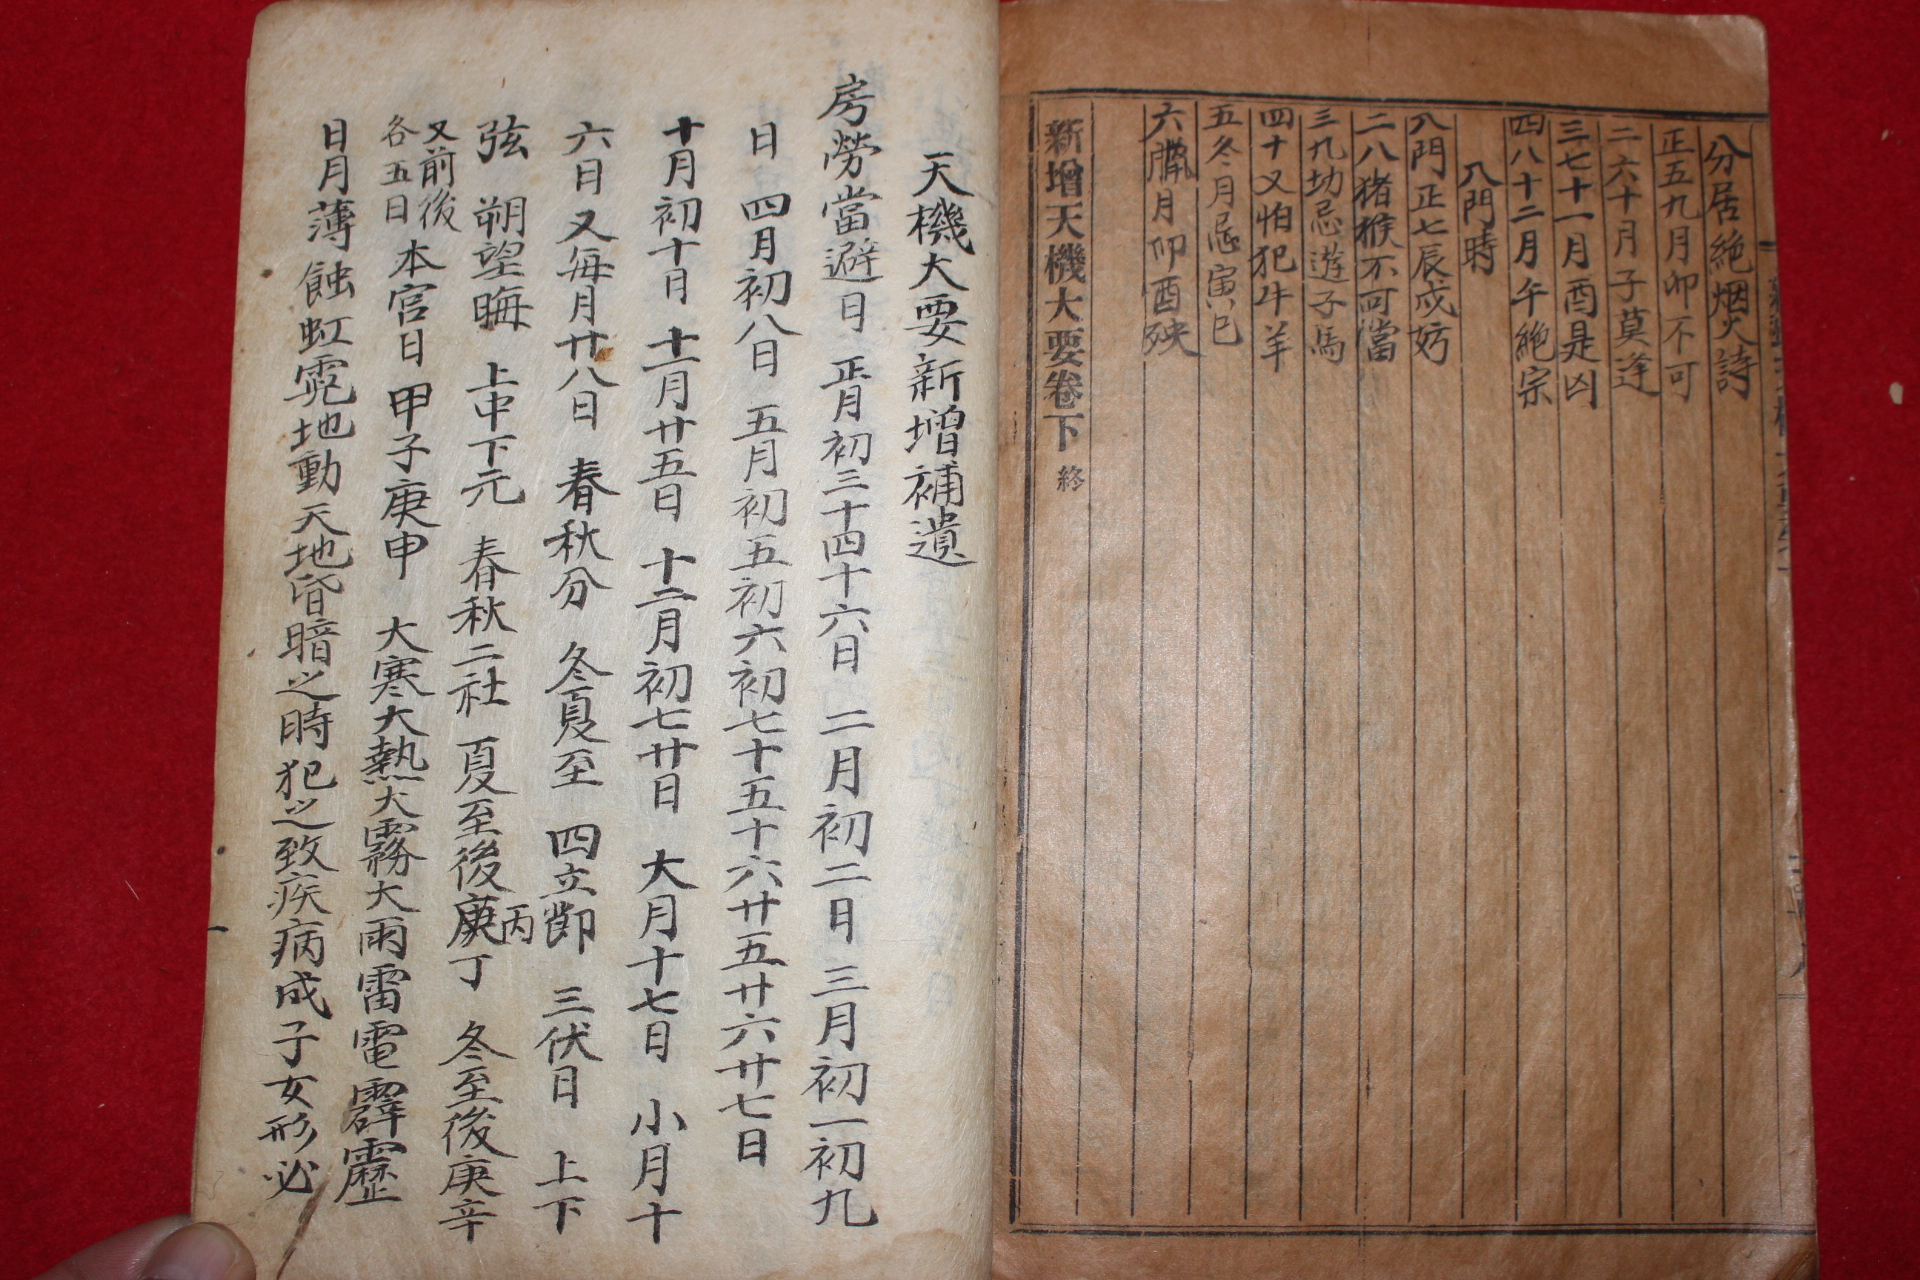 分居絶烟火詩
正五九月卯不可
二六十月子莫逢
三七十一月酉是凶
四八十二月午絶宗
八門時
八門正七辰戌妨
二八猪猴不可當
三九切忌遊子馬
四十又怕犯牛羊
五冬月忌寅巳
六臘月卯酉殃
新增天機大要卷下 終
天機大要新增補遺
房勞當避日 正月初三十四十六日 二月初二日 三月初一初九
日 四月初八日 五月初五初六初七十五十六廿五廿六廿七日
十月初十日 十一月廿五日 十二月初七廿日 大月十七日 小月十
六日又每月廿八日 春秋分 冬夏至 四立節 三伏日 上下
弦 朔望晦 上中下元 春秋二社 夏至後丙庚丁 冬至後庚辛
又前後各五日 本宮日 甲子庚申 大寒大熱大霧大雨雷電霹靂
日月薄蝕虹霓地動天地昏暗之時犯之致疾病成子女形必